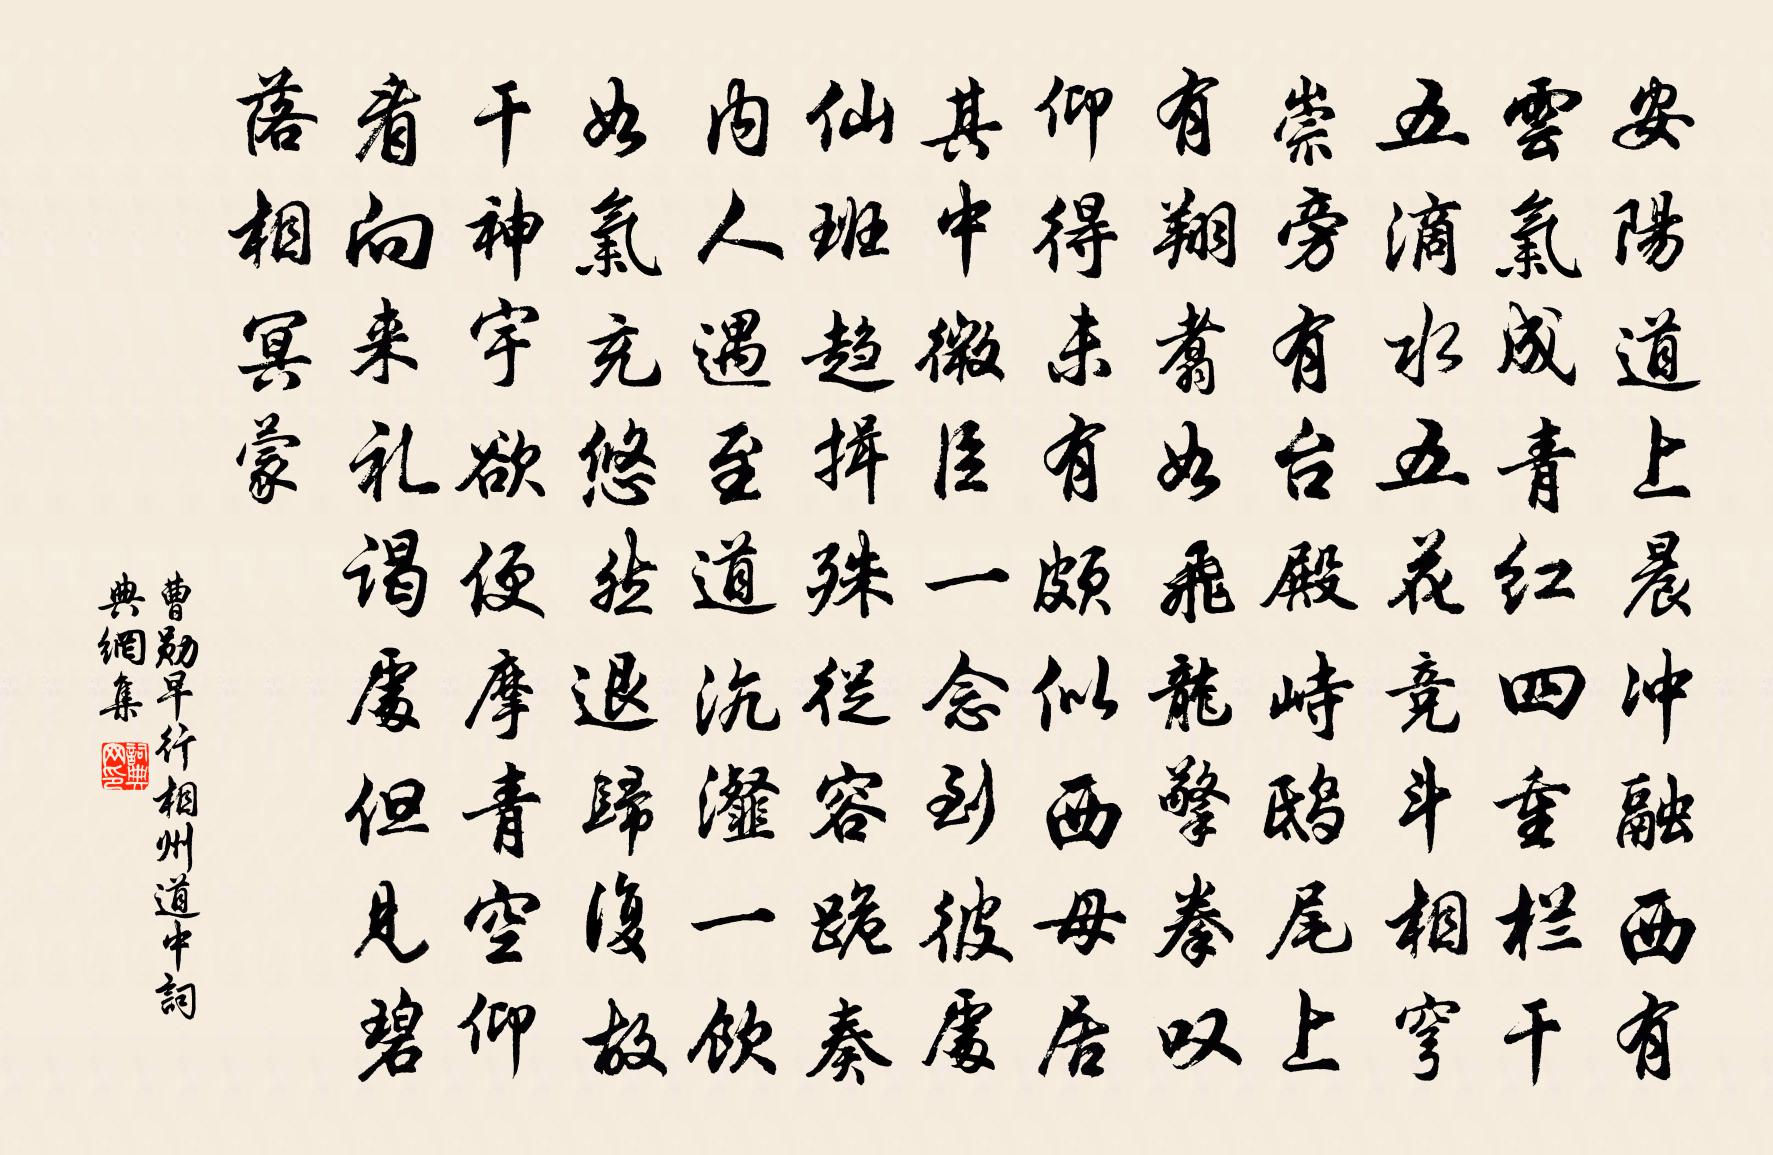 安陽道上晨沖融西有
雲氣成青红四重栏干
五滴水五花竞斗相穹
崇旁有台殿峙鸱尾上
有翔翥如飛龍擎拳叹
仰得未有頗似西母居
其中微臣一念到彼處
仙班趋揖殊從容跪奏
内人遇至道沆瀣一飲
如氣充悠然退歸復故
干神宇欲便摩青空仰
看向来礼谒處但見碧
落相冥蒙
曹勛早行相州道中詞
典網集
詞典
网印